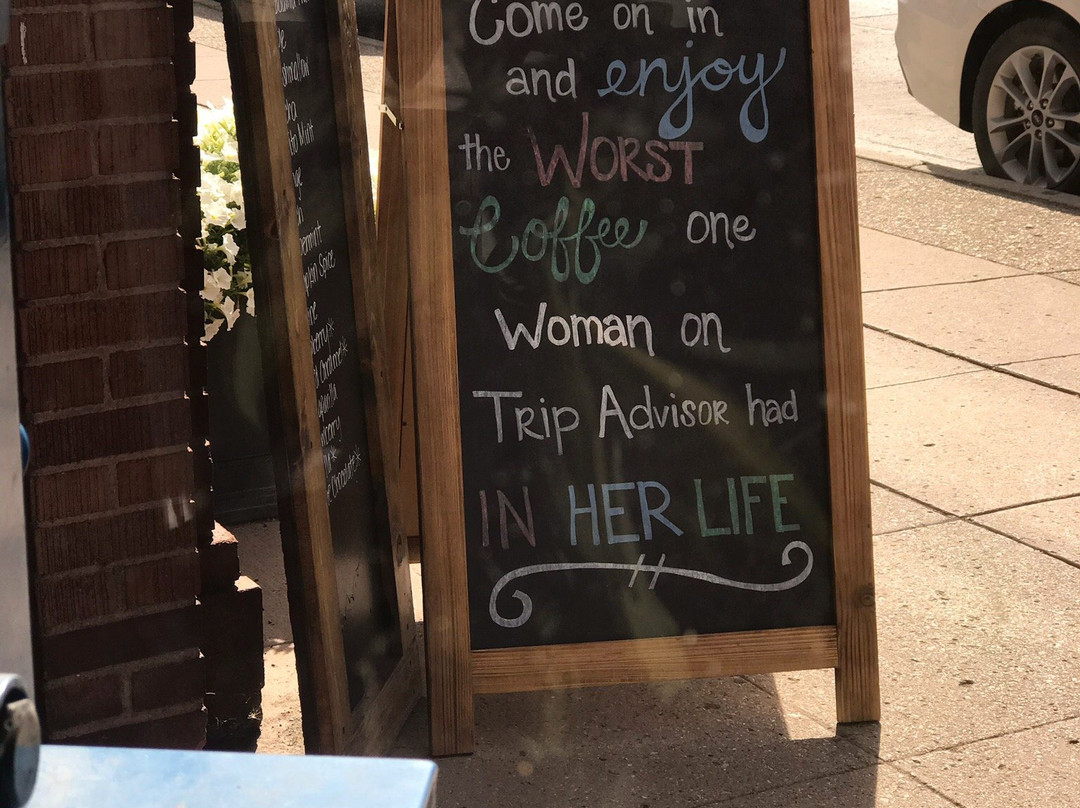 Come on in
and enjoy
the WORST
Coffee one
Woman on
Trip Advisor had
IN HER LIFE
Mint
Spice
Chocolate*